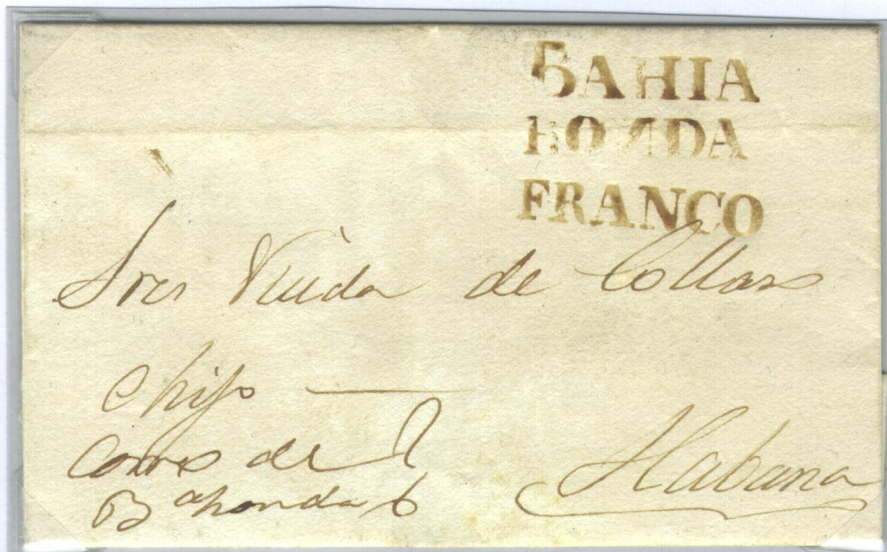 BAHIA
HONDA
FRANCO
Sres Viuda de Collazo
é hijo
Correo de
Bahonda
Habana